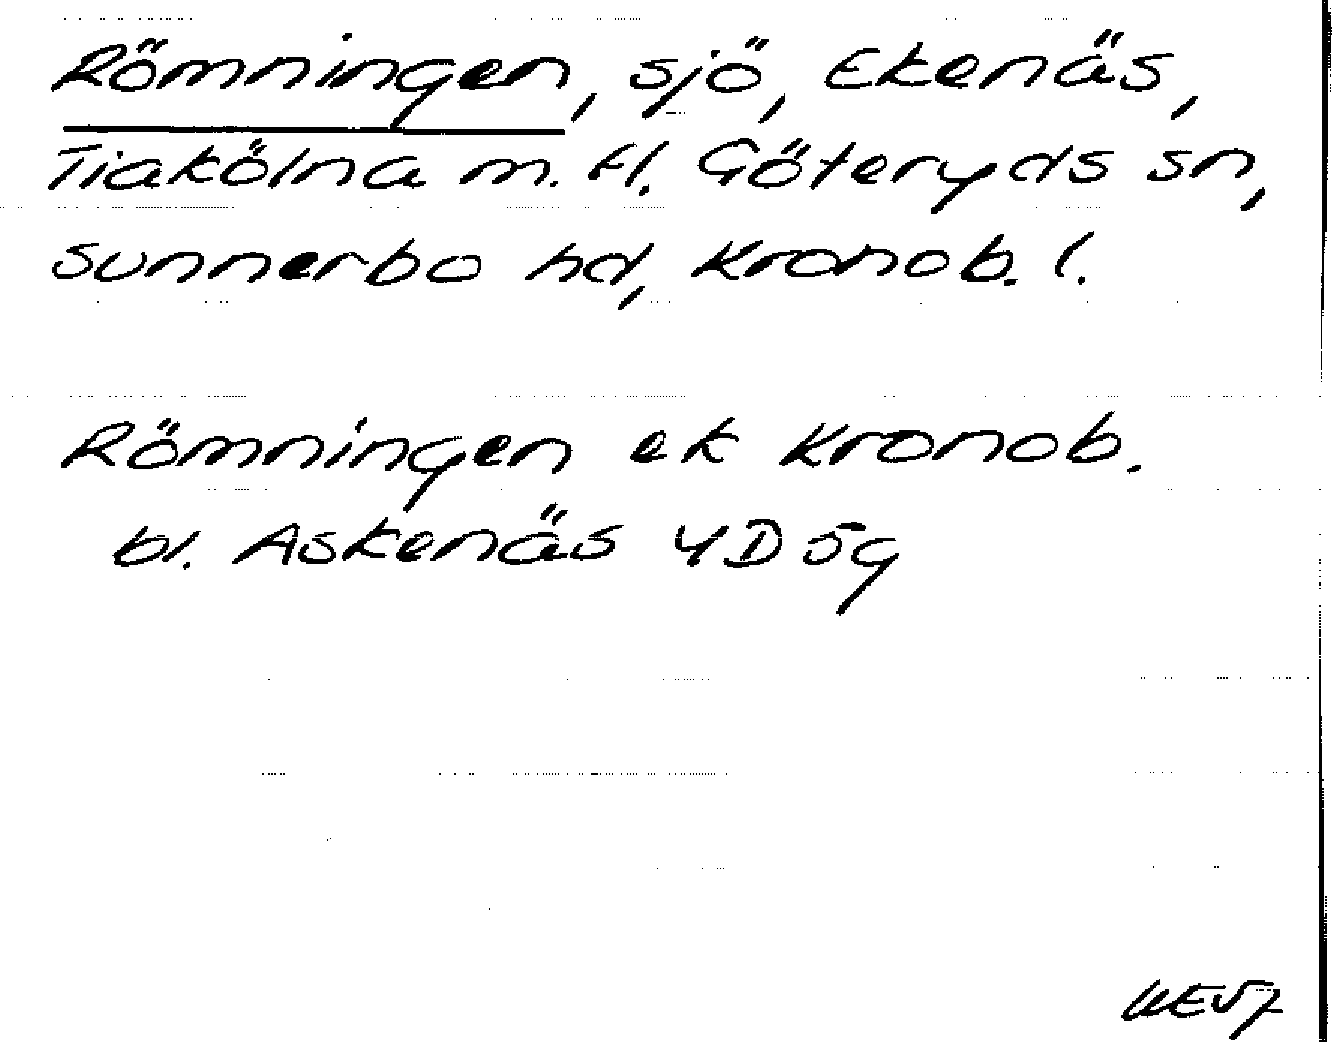 Römningen, sjö, Ekenäs,
Tiakölna m. fl. Göteryds sn,
Sunnerbo hd, Kronob. l.
Römningen ek Kronob.
bl. Askenäs 4D 5g